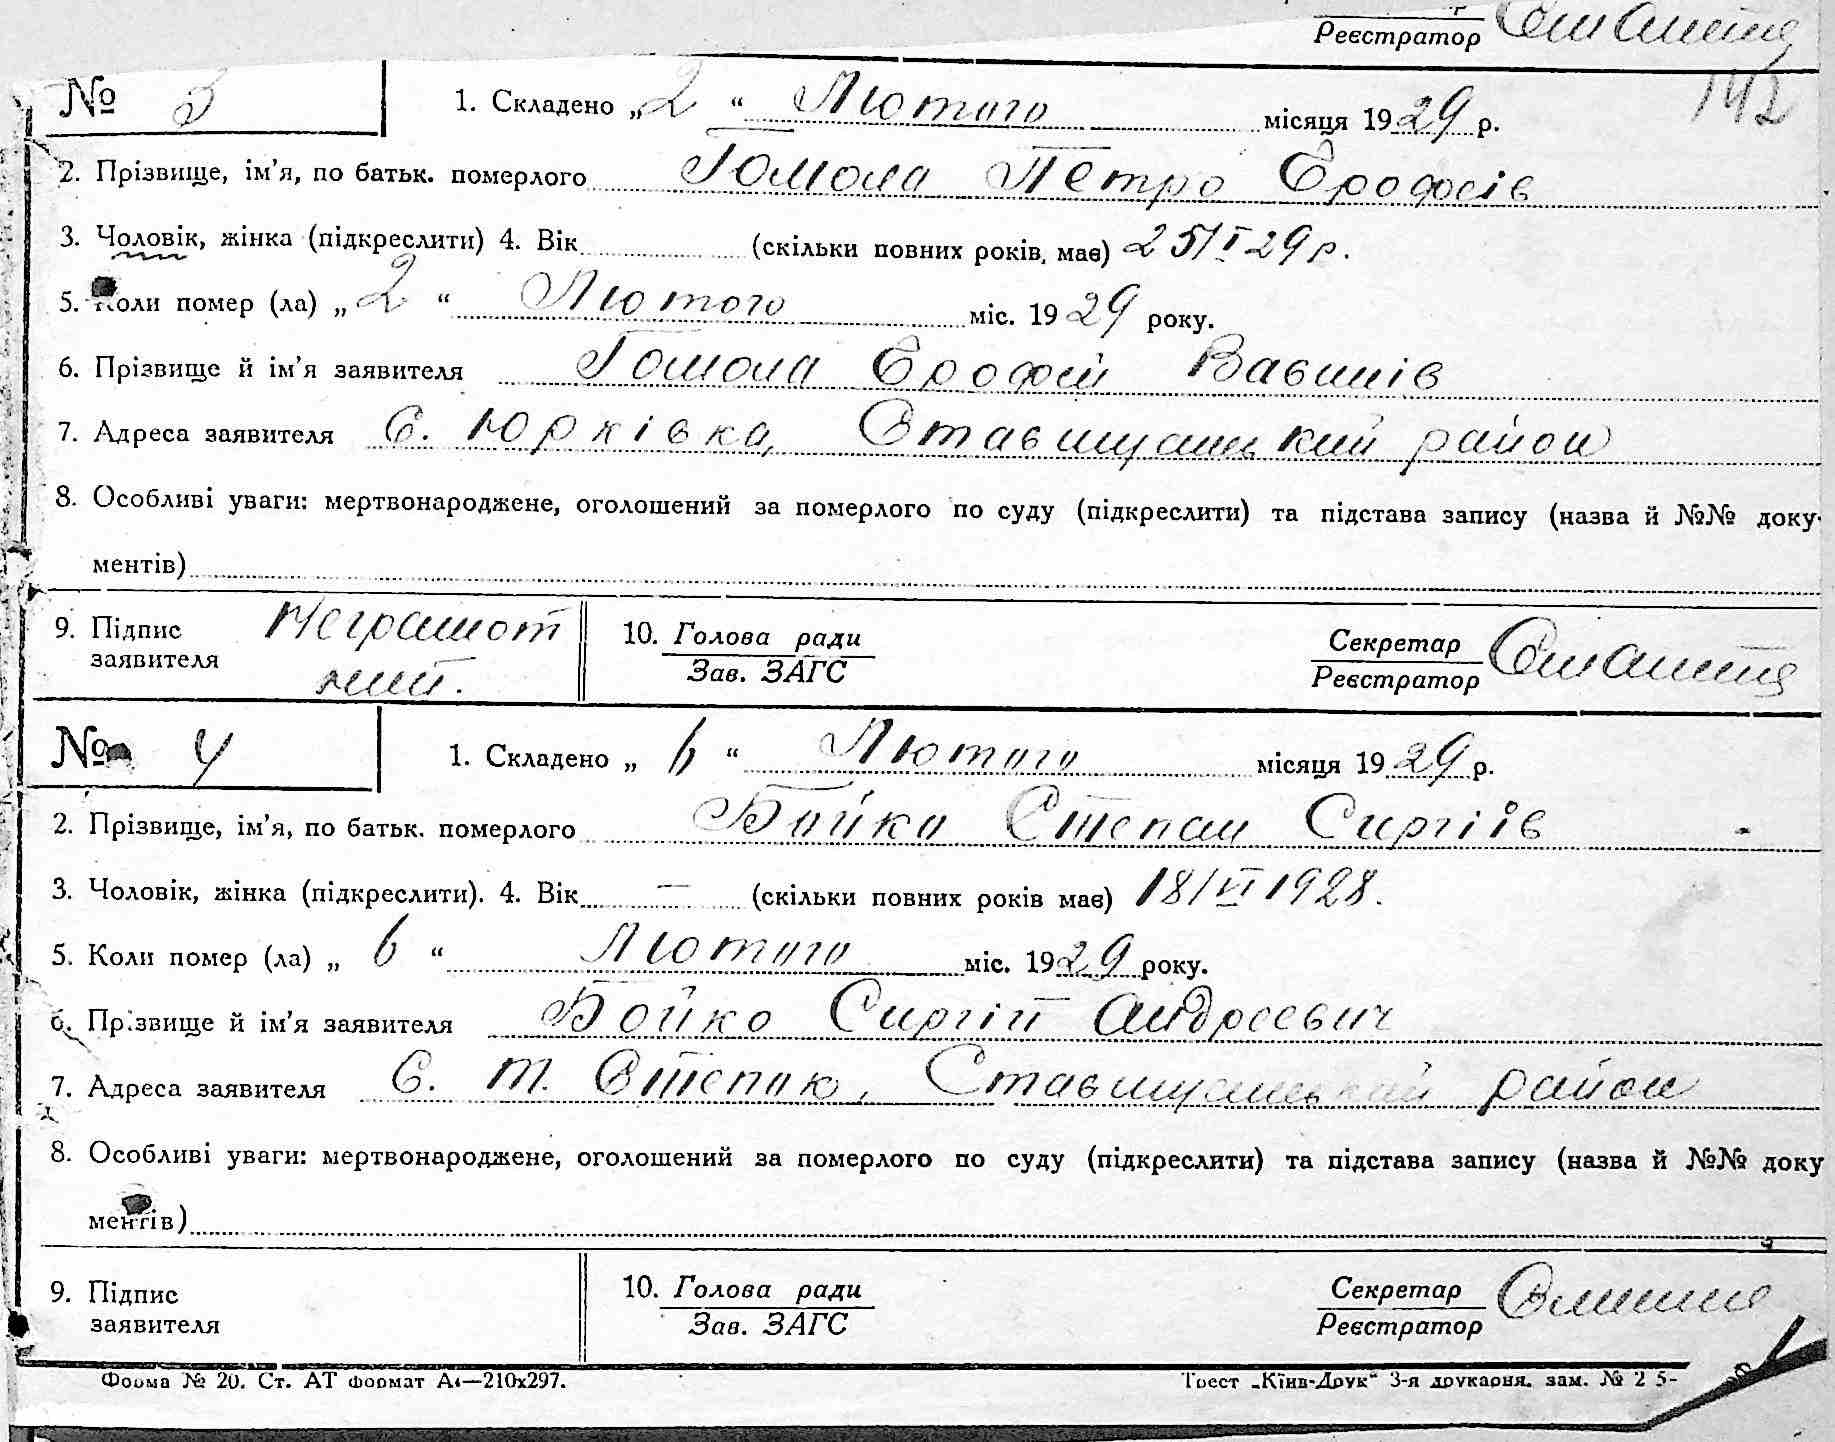 Реєстратор
142
№ 3 1. Складено „2“ Лютого місяця 1929 р.
2. Прізвище, ім'я, по батьк. померлого Гомола Петро Єрофеів
3. Чоловік, жінка (підкреслити) 4. Вік (скільки повних років, має) 25/I 29 р.
5. Коли помер (ла) „2“ Лютого міс. 1929 року.
6. Прізвище й ім'я заявителя Гомола Єрофій Вавилів
7. Адреса заявителя с. Юрківка, Ставищанський район
8. Особливі уваги: мертвонароджене, оголошений за померлого по суду (підкреслити) та підстава запису (назва й №№ доку-
ментів)
9. Підпис заявителя Неграмотний. 10. Голова ради Секретар
Зав. ЗАГС Реєстратор
№ 4 1. Складено „6“ Лютого місяця 1929 р.
2. Прізвище, ім'я, по батьк. померлого Бойко Степан Сиргіїв
3. Чоловік, жінка (підкреслити). 4. Вік — (скільки повних років має) 18/VI 1928.
5. Коли помер (ла) „6“ Лютого міс. 1929 року.
6. Прізвище й ім'я заявителя Бойко Сиргій Андреевич
7. Адреса заявителя С. т. Степок, Ставищанський район
8. Особливі уваги: мертвонароджене, оголошений за померлого по суду (підкреслити) та підстава запису (назва й №№ доку
ментів)
9. Підпис 10. Голова ради Секретар
заявителя Зав. ЗАГС Реєстратор
Форма № 20. Ст. АТ формат А4—210х297. Трест „Київ-Друк“ 3-я друкарня. зам. № 2 5-